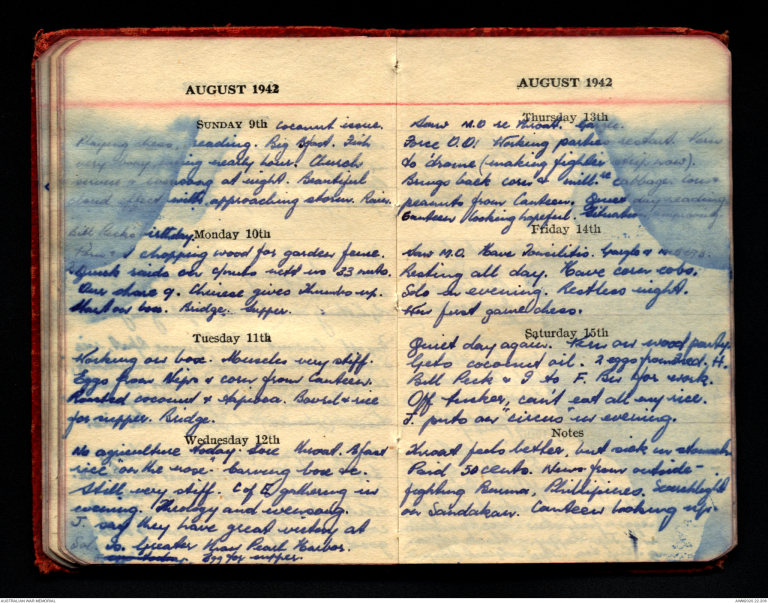 AUGUST 1942
SUNDAY 9th Coconut issue.
Playing chess, reading. Big Bfast. Fish
very during nearly hour. Church
service & evensong at night. Beautiful
cloud effect with approaching storm. Rain.
Bill Peck's birthday.
Monday 10th
chopping wood for garden fence.
raids on nuts nett us 33 nuts.
Our share 9. Chinese gives thumbs up.
Start on box. Bridge. Supper.
Tuesday 11th
Working on box. Muscles very stiff.
Eggs from Nips & corn from Canteen.
Roasted coconut & tapioca. Bovril & rice
for supper. Bridge.
Wednesday 12th
No agriculture today. Sore throat. Bfast
rice "on the nose" Carving box etc.
Still very stiff. C of E gathering in
evening. Theology and evensong.
J. say they have great victory at
So. Greater than Pearl Harbor.
Egg for supper.
AUGUST 1942
Thursday 13th
Saw M.O re throat. Gargle.
Force O.D! Working parties restart. Kern
to 'drome (making fighter strip now).
Brings back corn & milk. Cabbage, corn &
peanuts from Canteen. Quiet day reading
Canteen looking hopeful. Situation temporarily
Friday 14th
Saw M.O. Have Tonsilitis. Gargle &
Resting all day. Have corn cobs.
Solo in evening. Restless night.
Kern first game chess.
Saturday 15th
Quiet day again. Kern on wood party.
Gets coconut oil. 2 eggs from Red. H.
Bill Peck & I to F. Bis for work.
Off tucker, can't eat all my rice.
J. puts on "circus" in evening.
Notes
Throat feels better, but sick in stomach
Paid 50 cents. News from outside -
fighting Burma, Phillipines. Searchlight
on Sandakan. Canteen looking up.
AUSTRALIAN WAR MEMORIAL